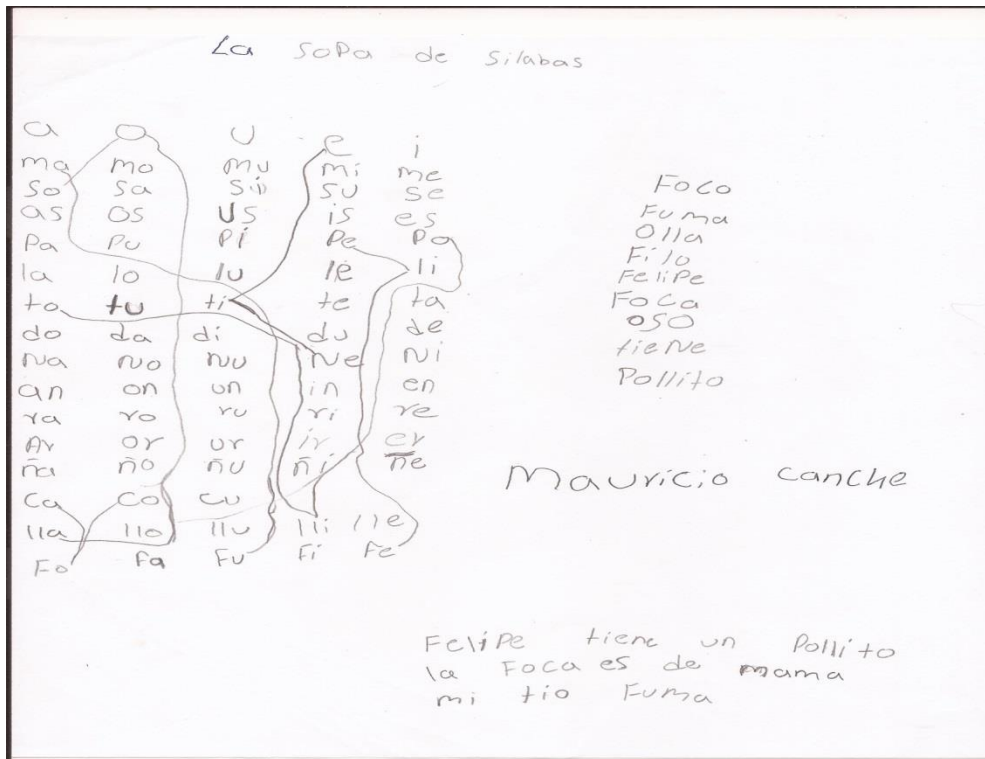 La SoPa de Silabas
a o u e i
ma mo mu mi me
so sa si su se
as os us is es
Pa Pu Pi Pe Po
la lo lu le li
to tu ti te ta
do da di du de
Na No Nu Ne Ni
an on un in en
ra ro ru ri re
Ar or ur ir er
ña ño ñu ñi ñe
Ca Co Cu
lla llo llu lli lle
Fo Fa Fu Fi Fe
Foco
Fuma
Olla
Filo
Felipe
Foca
OSO
tieNe
Pollito
Mauricio canche
Felipe tiene un Pollito
la Foca es de mama
mi tio Fuma